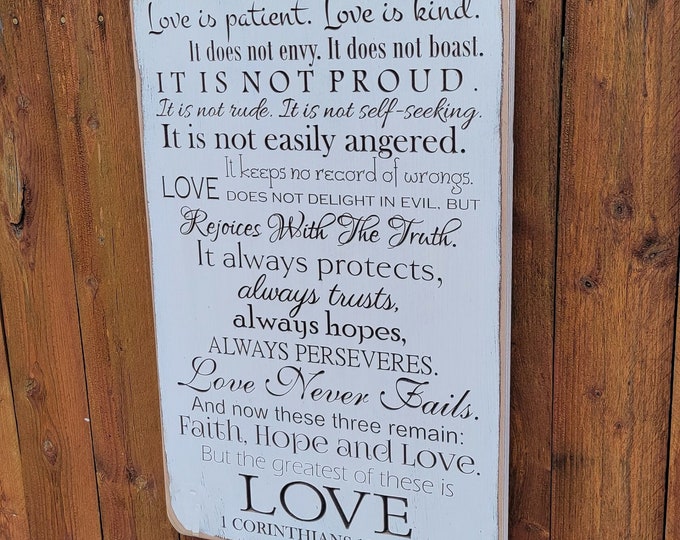 Love is patient. Love is kind.
It does not envy. It does not boast.
IT IS NOT PROUD.
It is not rude. It is not self-seeking.
It is not easily angered.
It keeps no record of wrongs.
LOVE DOES NOT DELIGHT IN EVIL, BUT
Rejoices With The Truth.
It always protects,
always trusts,
always hopes,
ALWAYS PERSEVERES.
Love Never Fails.
And now these three remain:
Faith, Hope and Love.
But the greatest of these is
LOVE
1 CORINTHIANS